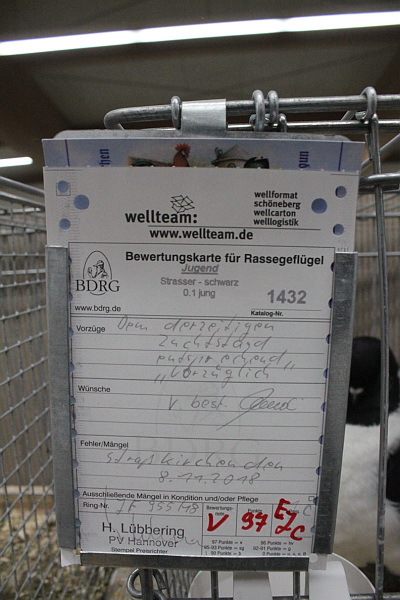 wellteam:
wellformat
schöneberg
wellcarton
welllogistik
www.wellteam.de
BDRG
Bewertungskarte für Rassegeflügel
Jugend
Strasser - schwarz
0.1 jung
1432
www.bdrg.de
Katalog-Nr.
Vorzüge Dem derzeitigen
Zuchtstand
entsprechend
"Vorzüglich"
Wünsche
v. best.
Fehler/Mängel
Straßkirchen den
8.11.2018
Ausschließende Mängel in Kondition und/oder Pflege
Ring-Nr.
Bewertungs-
note
V
97
EZC
H. Lübbering
PV Hannover
Stempel Preisrichter
97 Punkte = v
96 Punkte = hv